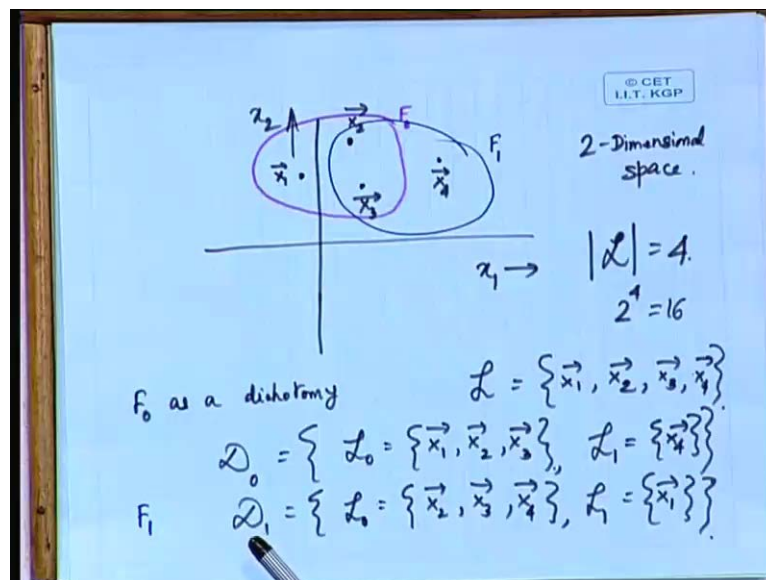 © CET
I.I.T. KGP
x₂
x⃗₂
F₀
F₁
2-Dimensional
space.
x⃗₁
x⃗₃
x⃗₄
x₁ →
|ℒ| = 4.
2⁴ = 16
ℒ = {x⃗₁, x⃗₂, x⃗₃, x⃗₄}.
F₀ as a dichotomy
𝒟₀ = { ℒ₀ = {x⃗₁, x⃗₂, x⃗₃}, ℒ₁ = {x⃗₄}}
F₁ 𝒟₁ = { ℒ₀ = {x⃗₂, x⃗₃, x⃗₄}, ℒ₁ = {x⃗₁}}.